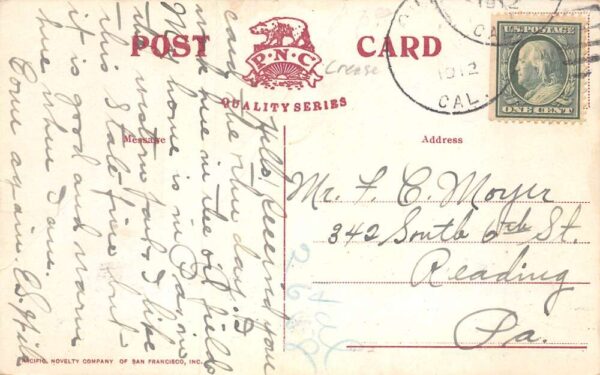 POST CARD
P.N.C
QUALITY SERIES
Crease
1912
CAL.
1912
CAL.
U.S. POSTAGE
ONE CENT
Message
Address
Hello, Received your
card the other day. I
work here in the oil fields
My home is in
the western part. I like
this State fine but
it is good and warm
here where I am.
Come again. C.S.
Mr. F. C. Moyer
342 South 6th St.
Reading
Pa.
PACIFIC NOVELTY COMPANY OF SAN FRANCISCO, INC.